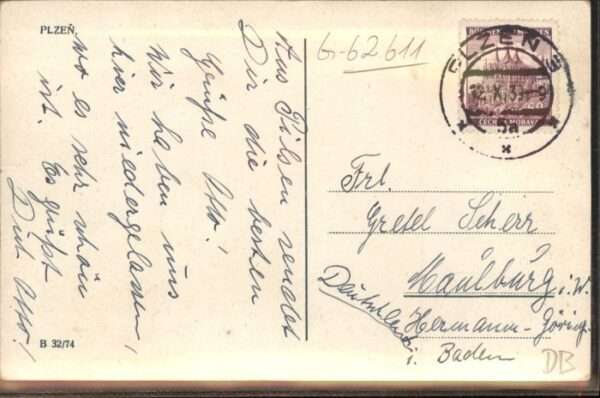 PLZEŇ.
Aus Pilsen sendet
Dir die besten
Grüße Otto!
Wir haben uns
hier niedergelassen,
wo es sehr schön
ist. Es grüßt
Dich Otto!
B 32/74
G-62611
PLZEŇ
ČECHY A MORAVA
Frl.
Gretel Scherr
Maulburg i. W.
Hermann-Göring-
Deutschland
i. Baden
DB